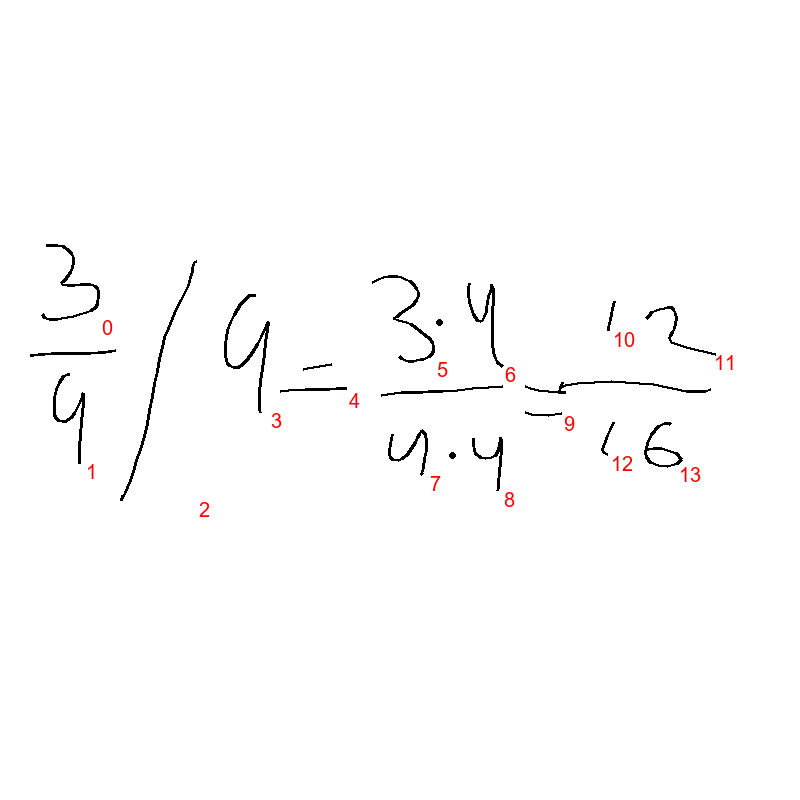 3/4 / 4 = 3·4/4·4 = 12/16
0 1 2 3 4 5 6 7 8 9 10 11 12 13